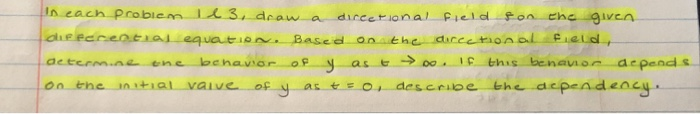 In each problem 1&3, draw a directional field for the given
differential equation. Based on the directional field,
determine the behavior of y as t → ∞. If this behavior depends
on the initial value of y as t = 0, describe the dependency.